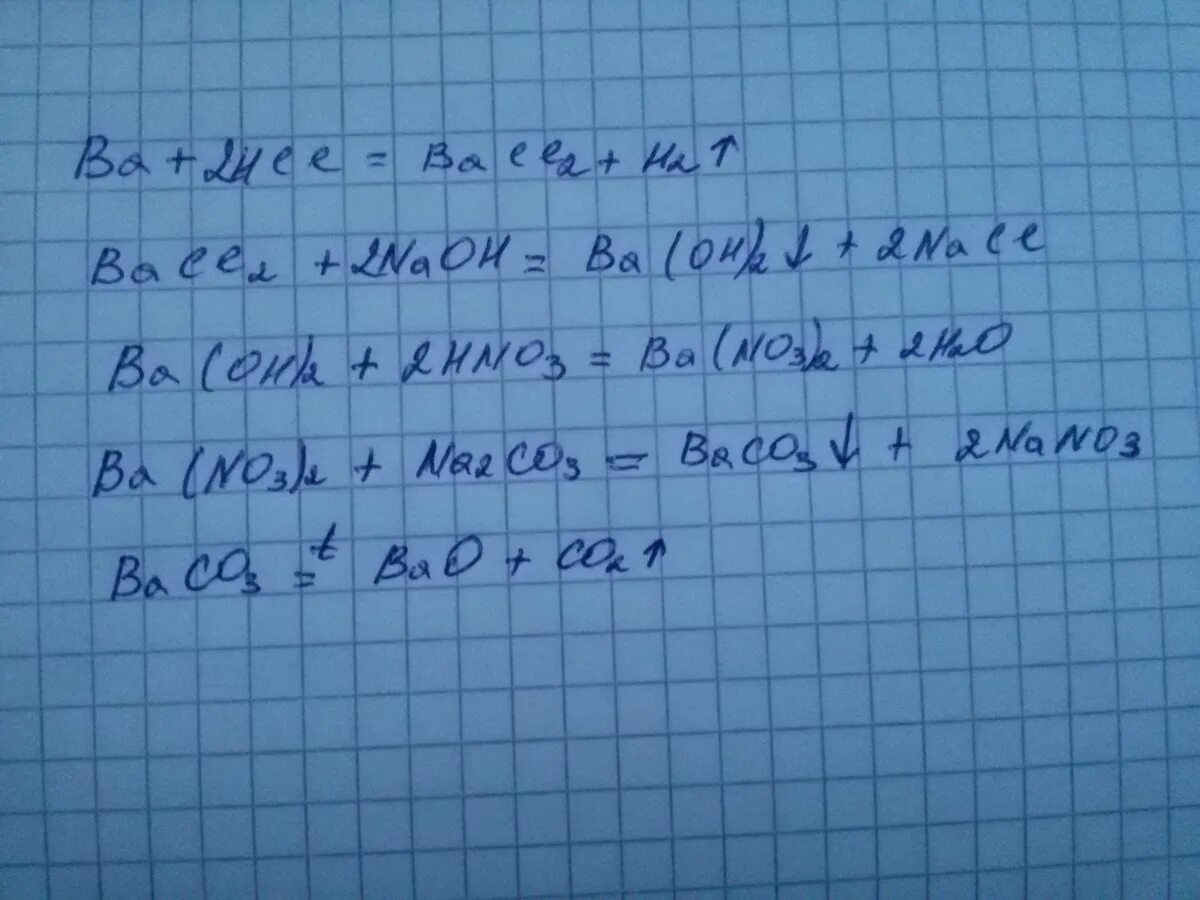 Ba + 2HCl = BaCl₂ + H₂↑
BaCl₂ + 2NaOH = Ba(OH)₂↓ + 2NaCl
Ba(OH)₂ + 2HNO₃ = Ba(NO₃)₂ + 2H₂O
Ba(NO₃)₂ + Na₂CO₃ = BaCO₃↓ + 2NaNO₃
BaCO₃ =ᵗ BaO + CO₂↑